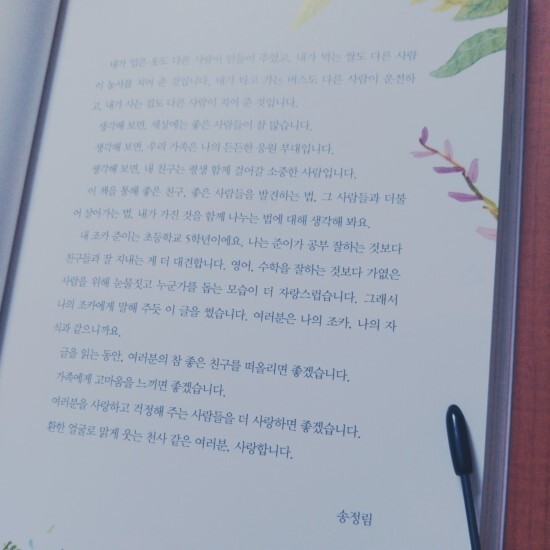 내가 입은 옷도 다른 사람이 만들어 주었고, 내가 먹는 쌀도 다른 사람
이 농사를 지어 준 것입니다. 내가 타고 가는 버스도 다른 사람이 운전하
고, 내가 사는 집도 다른 사람이 지어 준 것입니다.
생각해 보면, 세상에는 좋은 사람들이 참 많습니다.
생각해 보면, 우리 가족은 나의 든든한 응원 부대입니다.
생각해 보면, 내 친구는 평생 함께 걸어갈 소중한 사람입니다.
이 책을 통해 좋은 친구, 좋은 사람들을 발견하는 법, 그 사람들과 더불
어 살아가는 법, 내가 가진 것을 함께 나누는 법에 대해 생각해 봐요.
내 조카 준이는 초등학교 5학년이에요. 나는 준이가 공부 잘하는 것보다
친구들과 잘 지내는 게 더 대견합니다. 영어, 수학을 잘하는 것보다 가엾은
사람을 위해 눈물짓고 누군가를 돕는 모습이 더 자랑스럽습니다. 그래서
나의 조카에게 말해 주듯 이 글을 썼습니다. 여러분은 나의 조카, 나의 자
식과 같으니까요.
글을 읽는 동안, 여러분의 참 좋은 친구를 떠올리면 좋겠습니다.
가족에게 고마움을 느끼면 좋겠습니다.
여러분을 사랑하고 걱정해 주는 사람들을 더 사랑하면 좋겠습니다.
환한 얼굴로 맑게 웃는 천사 같은 여러분, 사랑합니다.
송정림